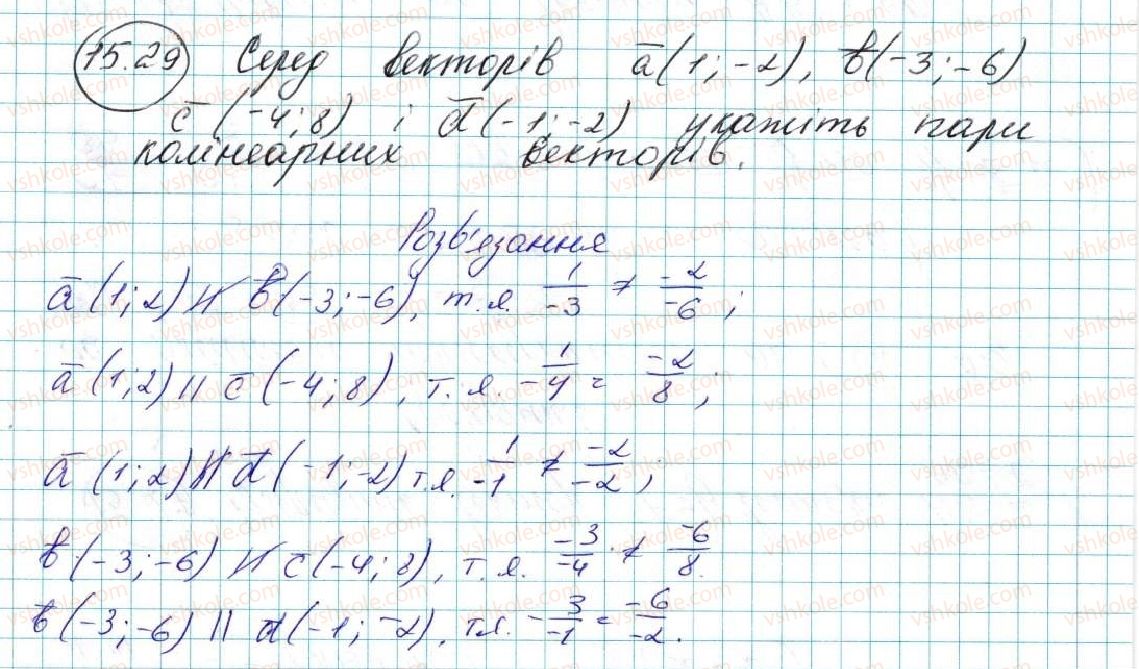 15.29 Серед векторів a̅(1;-2), b̅(-3;-6)
c̅ (-4;8) і d̅(-1;-2) укажіть пари
колінеарних векторів.
Розв'язання
a̅ (1;2) ∦ b̅(-3;-6), т.я. 1/-3 ≠ -2/-6;
a̅ (1;2) || c̅(-4;8), т.я. -1/4 = -2/8;
a̅ (1;2) ∦ d̅(-1;-2) т.я. 1/-1 ≠ -2/-2;
b̅(-3;-6) ∦ c̅(-4;8), т.я. -3/-4 ≠ -6/8.
b̅(-3;-6) || d(-1;-2), т.я. -3/-1 = -6/-2.